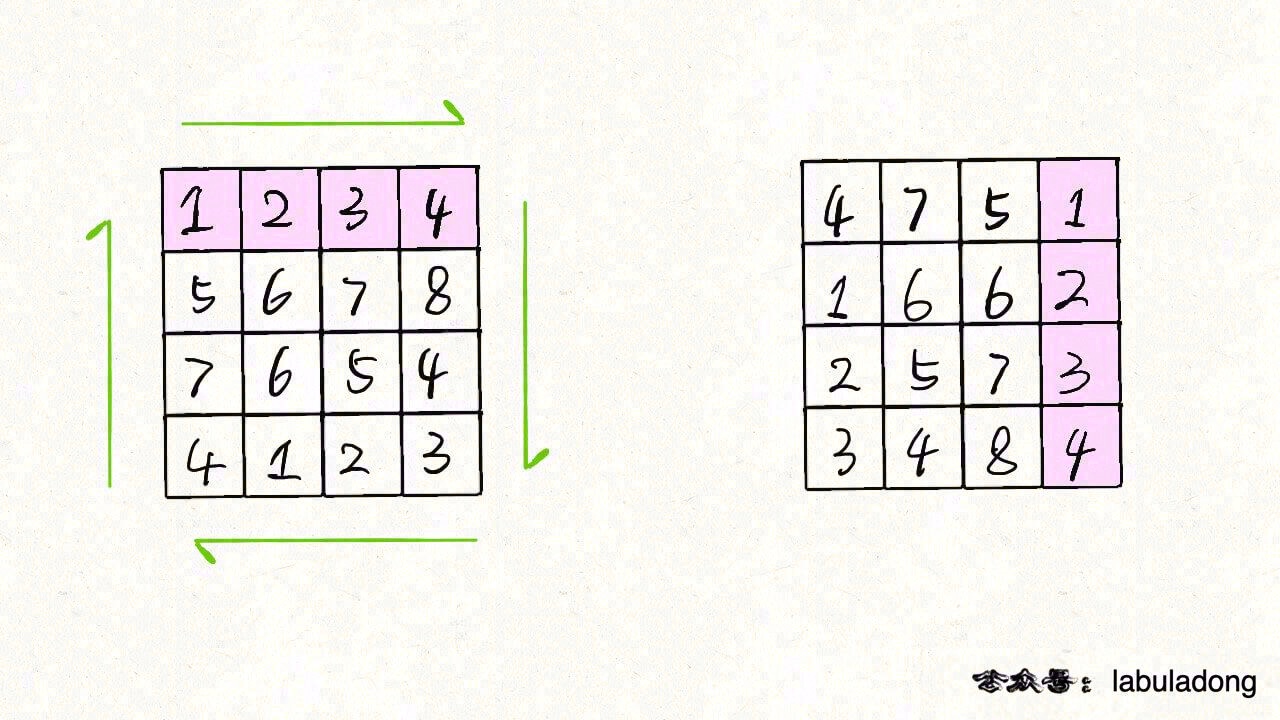 1 2 3 4
5 6 7 8
7 6 5 4
4 1 2 3
4 7 5 1
1 6 6 2
2 5 7 3
3 4 8 4
公众号：labuladong